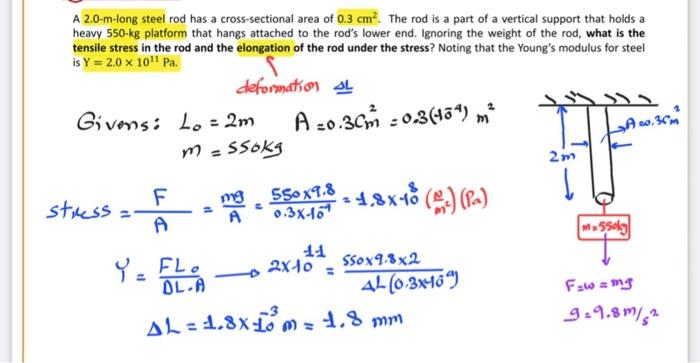 A 2.0-m-long steel rod has a cross-sectional area of 0.3 cm². The rod is a part of a vertical support that holds a
heavy 550-kg platform that hangs attached to the rod's lower end. Ignoring the weight of the rod, what is the
tensile stress in the rod and the elongation of the rod under the stress? Noting that the Young's modulus for steel
is Y = 2.0 × 10¹¹ Pa.
deformation ΔL
Givens: L₀ = 2m A = 0.3Cm² = 0.3(10⁻⁴) m²
m = 550kg
A=0.3Cm²
2m
stress = F/A = mg/A = 550x9.8/0.3x10⁻⁴ = 1.8x10⁸ (N/m²) (Pa)
m=550kg
Y = FL₀/ΔL.A → 2x10¹¹ = 550x9.8x2/ΔL(0.3x10⁻⁴)
F=w=mg
g=9.8m/s²
ΔL = 1.8x10⁻³ m = 1.8 mm